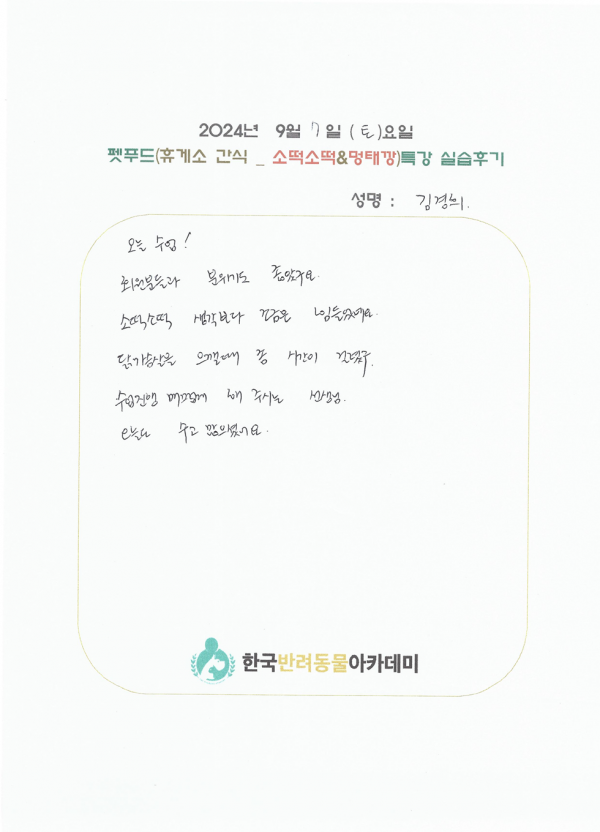 2024년 9월 7일 (토)요일
펫푸드(휴게소 간식 _ 소떡소떡&멍태깡)특강 실습후기
성명 : 김경희.
오늘 수업!
회원분들과 분위기도 좋았구요.
소떡소떡 생각보다 조금은 힘들었네요.
닭가슴살을 으깰때에 좀 시간이 걸렸구.
수업진행 매끄럽게 해 주시는 선생님.
오늘도 수고 많으셨어요.
한국반려동물아카데미